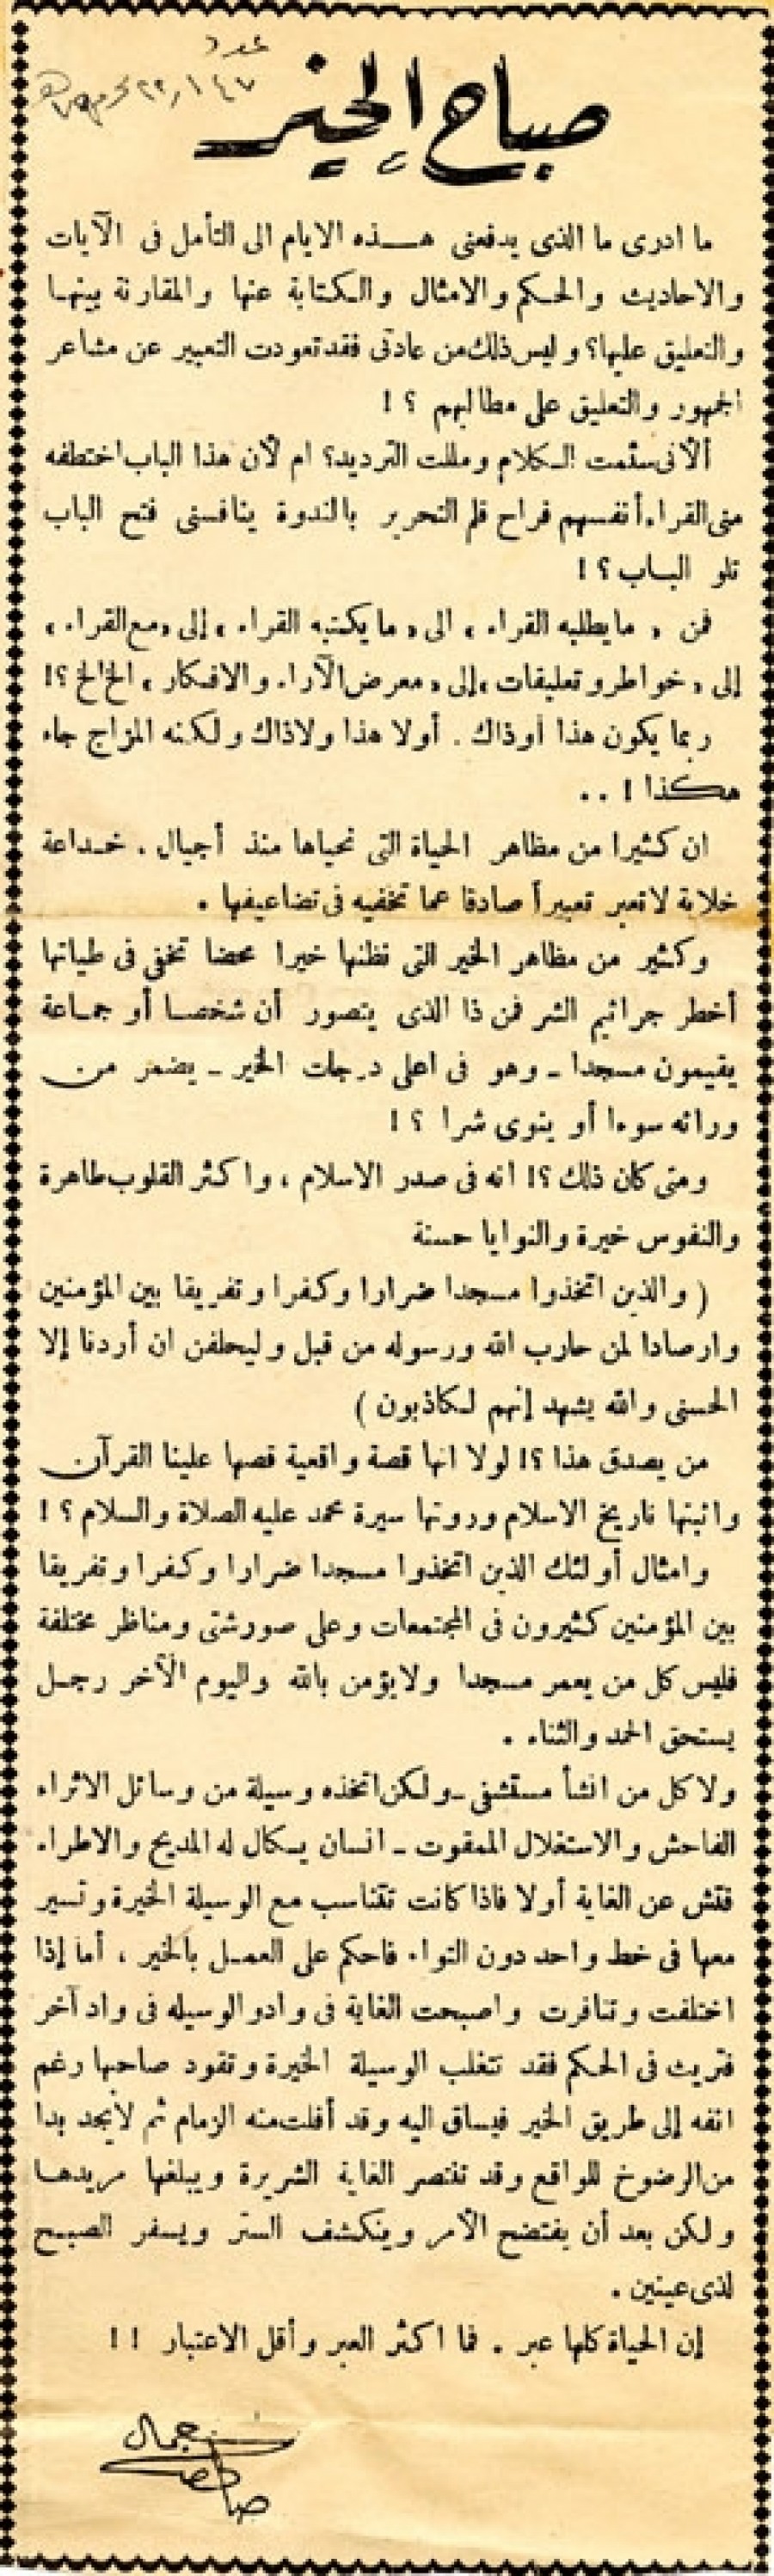 عدد
صباح الخير
ما ادرى ما الذى يدفعنى هــذه الايام الى التأمل فى الآيات
والاحاديث والحـكم والامثال والـكتابة عنها والمقارنة بينهـا
والتعليق عليها؟ وليس ذلك من عادتى فقد تعودت التعبير عن مشاعر
الجمهور والتعليق على مطالبهم ؟ !
ألأنى سئمت الـكلام ومللت الترديد؟ ام لأن هذا الباب اختطفه
منى القراء أنفسهم فراح قلم التحرير بالندوة ينافسنى فتح الباب
تلو البـاب ؟ !
فمن « ما يطلبه القراء » الى « ما يكتبه القراء » إلى « مع القراء »
إلى « خواطر وتعليقات » إلى « معرض الآراء والافـكار » الخ الخ ؟!
ربما يكون هذا أوذاك . أولا هذا ولاذاك ولـكنه المزاج جاء
هـكذا ! . .
ان كثيرا من مظاهر الحياة التى نحياها منذ أجيال . خـداعة
خلابة لا تعبر تعبيراً صادقا عما تخفيه فى تضاعيفها .
وكثير من مظاهر الخير التى نظنها خيرا محضا تخفى فى طياتها
أخطر جراثيم الشر فمن ذا الذى يتصور أن شخصـا أو جمـاعة
يقيمون مسجدا ـ وهو فى اعلى درجات الخير ـ يضمر من
ورائه سوءا أو ينوى شرا ؟ !
ومتى كان ذلك ؟! انه فى صدر الاسلام ، واكثر القلوب طاهرة
والنفوس خيرة والنوايا حسنة
( والذين اتخذوا مسجدا ضرارا وكفرا وتفريقا بين المؤمنين
وارصادا لمن حارب الله ورسوله من قبل وليحلفن ان أردنا إلا
الحسنى والله يشهد إنهم لـكاذبون )
من يصدق هذا ؟! لولا انها قصة واقعية قصها علينا القرآن
واثبتها تاريخ الاسلام وروتها سيرة محمد عليه الصلاة والسلام ؟ !
وامثال أولئك الذين اتخذوا مسجدا ضرارا وكفرا وتفريقا
بين المؤمنين كثيرون فى المجتمعات وعلى صور شتى ومناظر مختلفة
فليس كل من يعمر مسجدا ولا يؤمن بالله واليوم الآخر رجـل
يستحق الحمد والثناء .
ولا كل من انشأ مستشفى ـ ولكن اتخذه وسيلة من وسائل الاثراء
الفاحش والاستغلال الممقوت ـ انسان يـكال له المديح والاطراء
فتش عن الغاية أولا فاذا كانت تتناسب مع الوسيلة الخيرة وتسير
معها فى خط واحد دون التواء فاحكم على العمـل بالخير ، أما إذا
اختلفت وتنافرت واصبحت الغاية فى واد والوسيله فى واد آخر
فتريث فى الحـكم فقد تتغلب الوسيلة الخيرة وتقود صاحبها رغم
انفه إلى طريق الخير فيساق اليه وقد أفلت منه الزمام ثم لايجد بدا
من الرضوخ للواقع وقد تنتصر الغاية الشريرة ويبلغها مريدهـا
ولـكن بعد أن يفتضح الأمر وينكشف الستر ويسفر الصبـح
لذى عينين .
إن الحياة كلها عبر . فما اكثر العبر وأقل الاعتبار ! !